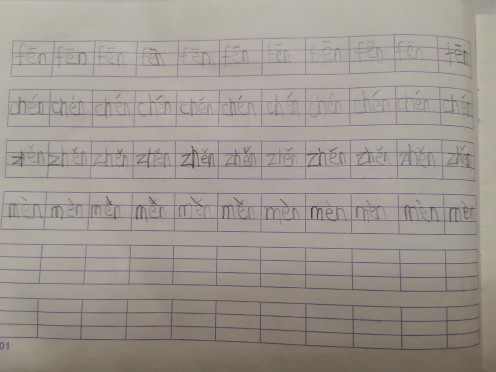 fēn fēn fēn fēn fēn fēn fēn fēn fēn fēn fēn
chén chén chén chén chén chén chén chén chén chén chén
zhěn zhěn zhěn zhěn zhěn zhěn zhěn zhěn zhěn zhěn
mèn mèn mèn mèn mèn mèn mèn mèn mèn mèn mèn
01